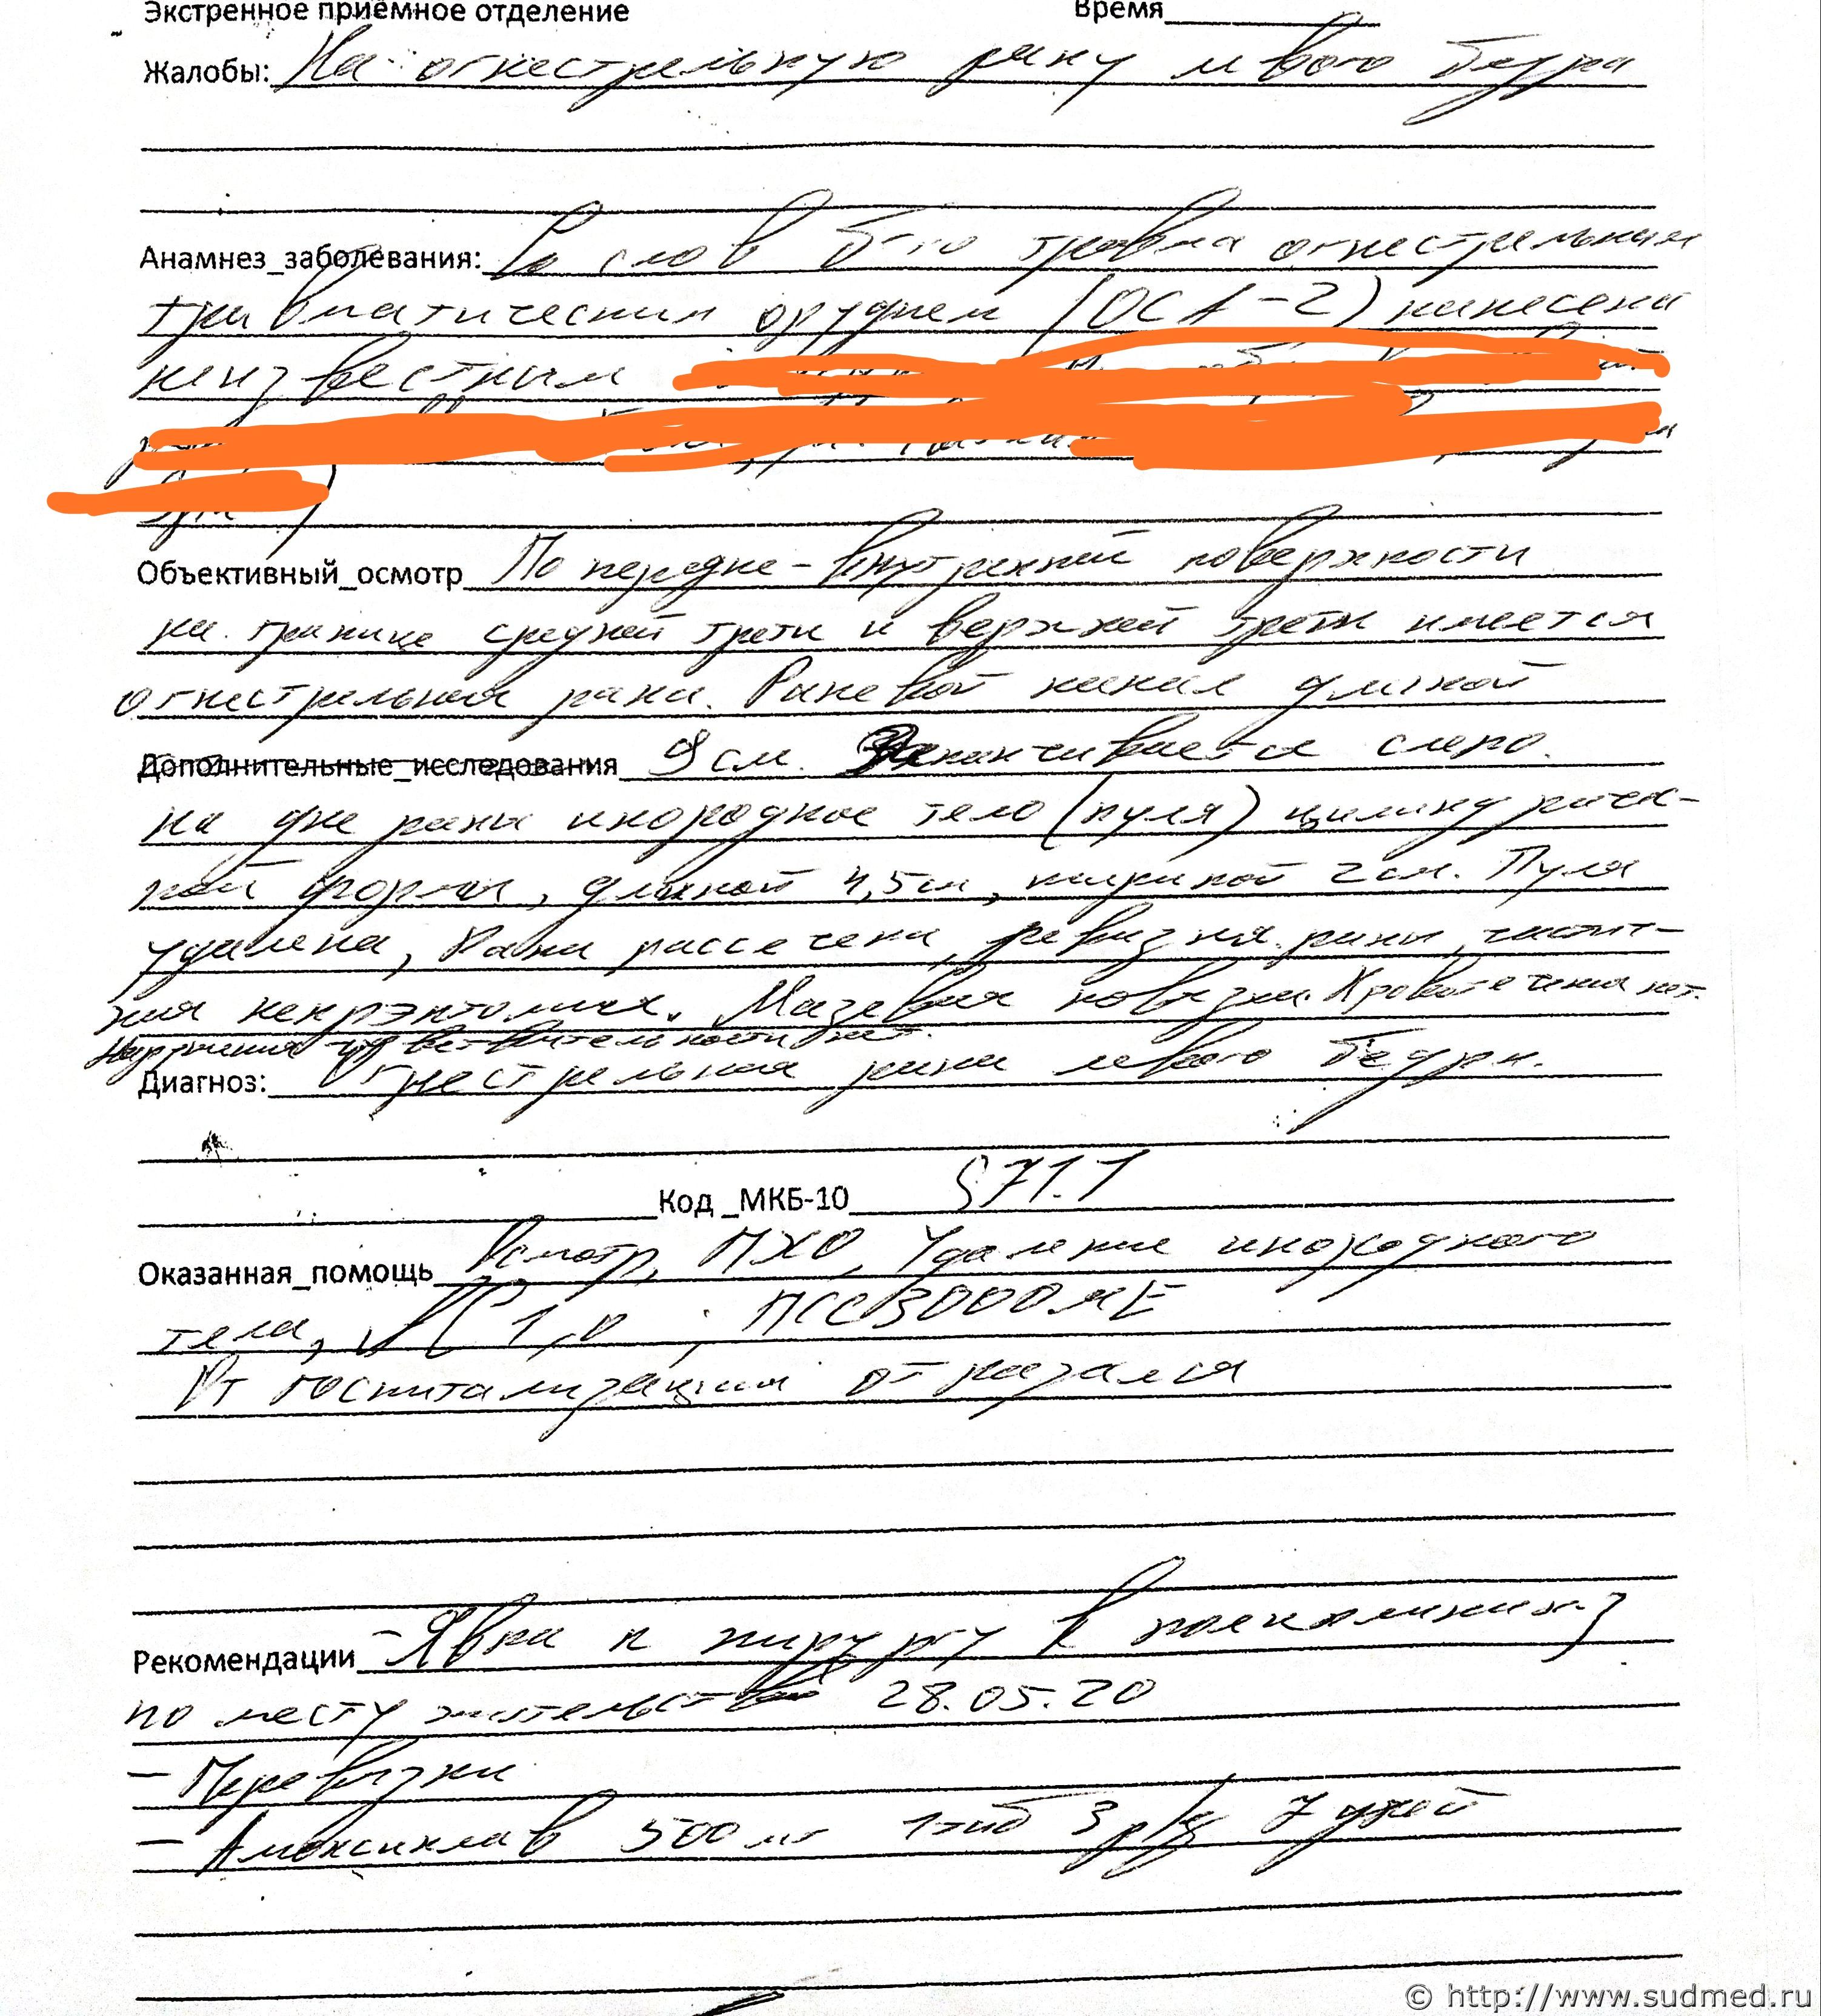 Экстренное приёмное отделение Время
Жалобы: На огнестрельную рану левого бедра
Анамнез_заболевания: Со слов б-го травма огнестрельным
травматическим орудием (ОСА-2) нанесена
неизвестным
Объективный_осмотр По передне-внутренней поверхности
на границе средней трети и верхней трети имеется
огнестрельная рана. Раневой канал длиной
Дополнительные_исследования 9 см. Заканчивается слепо.
на дне раны инородное тело (пуля) цилиндричес-
кой формы, длиной 4,5см, шириной 2см. Пуля
удалена, Рана рассечена, ревизия раны,
некрэктомия. Мазевая повязка. Кровотечения нет.
Нарушения чувствительности нет.
Диагноз: Огнестрельная рана левого бедра.
Код_МКБ-10 S71.1
Оказанная_помощь Осмотр, ПХО, Удаление инородного
тела, АС 1,0; ПСС 3000МЕ
От госпитализации отказался
Рекомендации - Явка к хирургу в поликлинику
по месту жительства 28.05.20
- Перевязки
- Амоксиклав 500мг 1таб 3 р/д 7 дней
© http://www.sudmed.ru